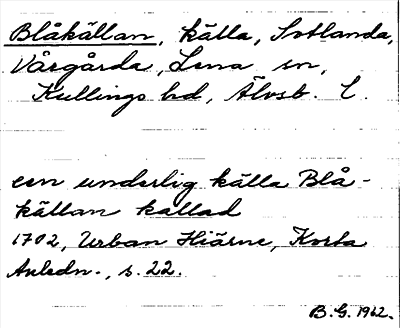 Blåkällan, källa, Sotlanda,
Vårgårda, Lena sn,
Kullings hd, Älvsb. l.
een underlig källa Blå-
källan kallad
1702, Urban Hiärne, Korta
Anledn., s. 22.
B.G. 1962.